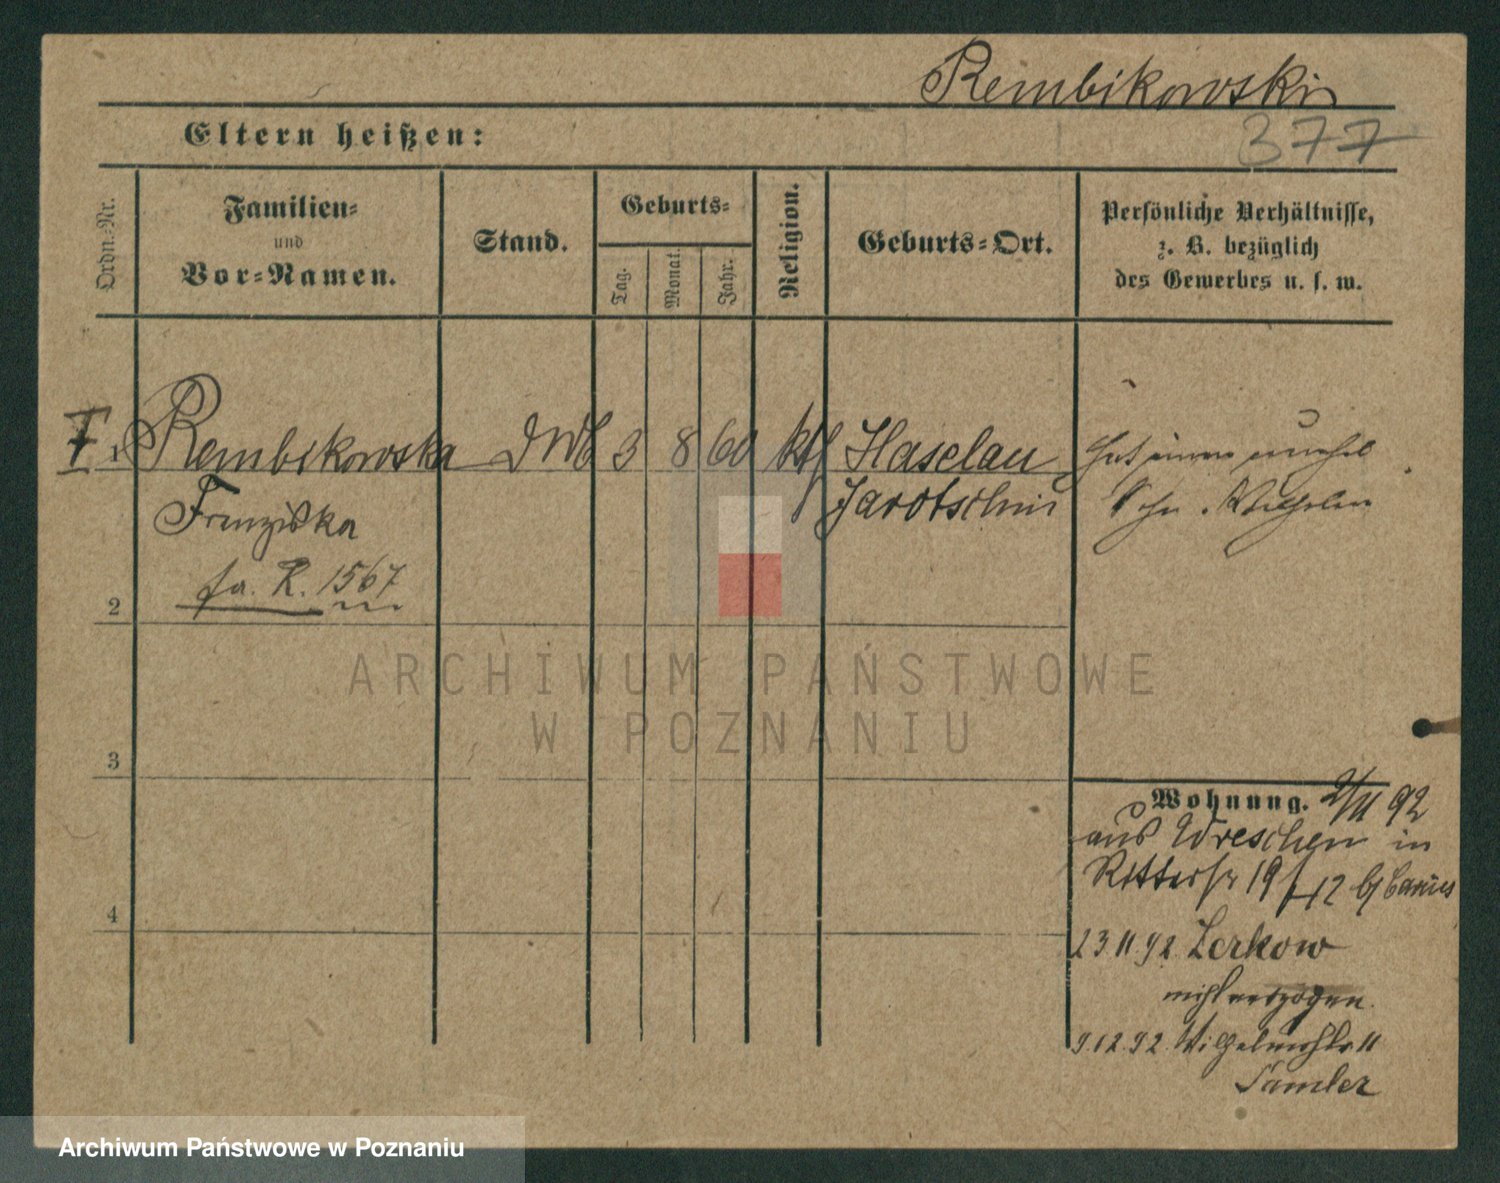 Rembikowski
377
Eltern heißen:
Ordn.-Nr.
Familien-
und
Vor-Namen.
Stand.
Geburts-
Tag.
Monat.
Jahr.
Religion.
Geburts-Ort.
Persönliche Verhältnisse,
z. B. bezüglich
des Gewerbes u. s. w.
1 Rembikowska 3 8 60 kth Haselau hat einen unehel
Franziska Jarotschin Sohn. Wilhelm
fa. R. 1567
2
3
4
ARCHIWUM PAŃSTWOWE
W POZNANIU
Wohnung. 2/11 92
aus Wreschen in
Ritterstr 19
23 11.92. Zerkow
nicht verzogen.
9.12.92. Wilhelmstr. 11
Samler
Archiwum Państwowe w Poznaniu